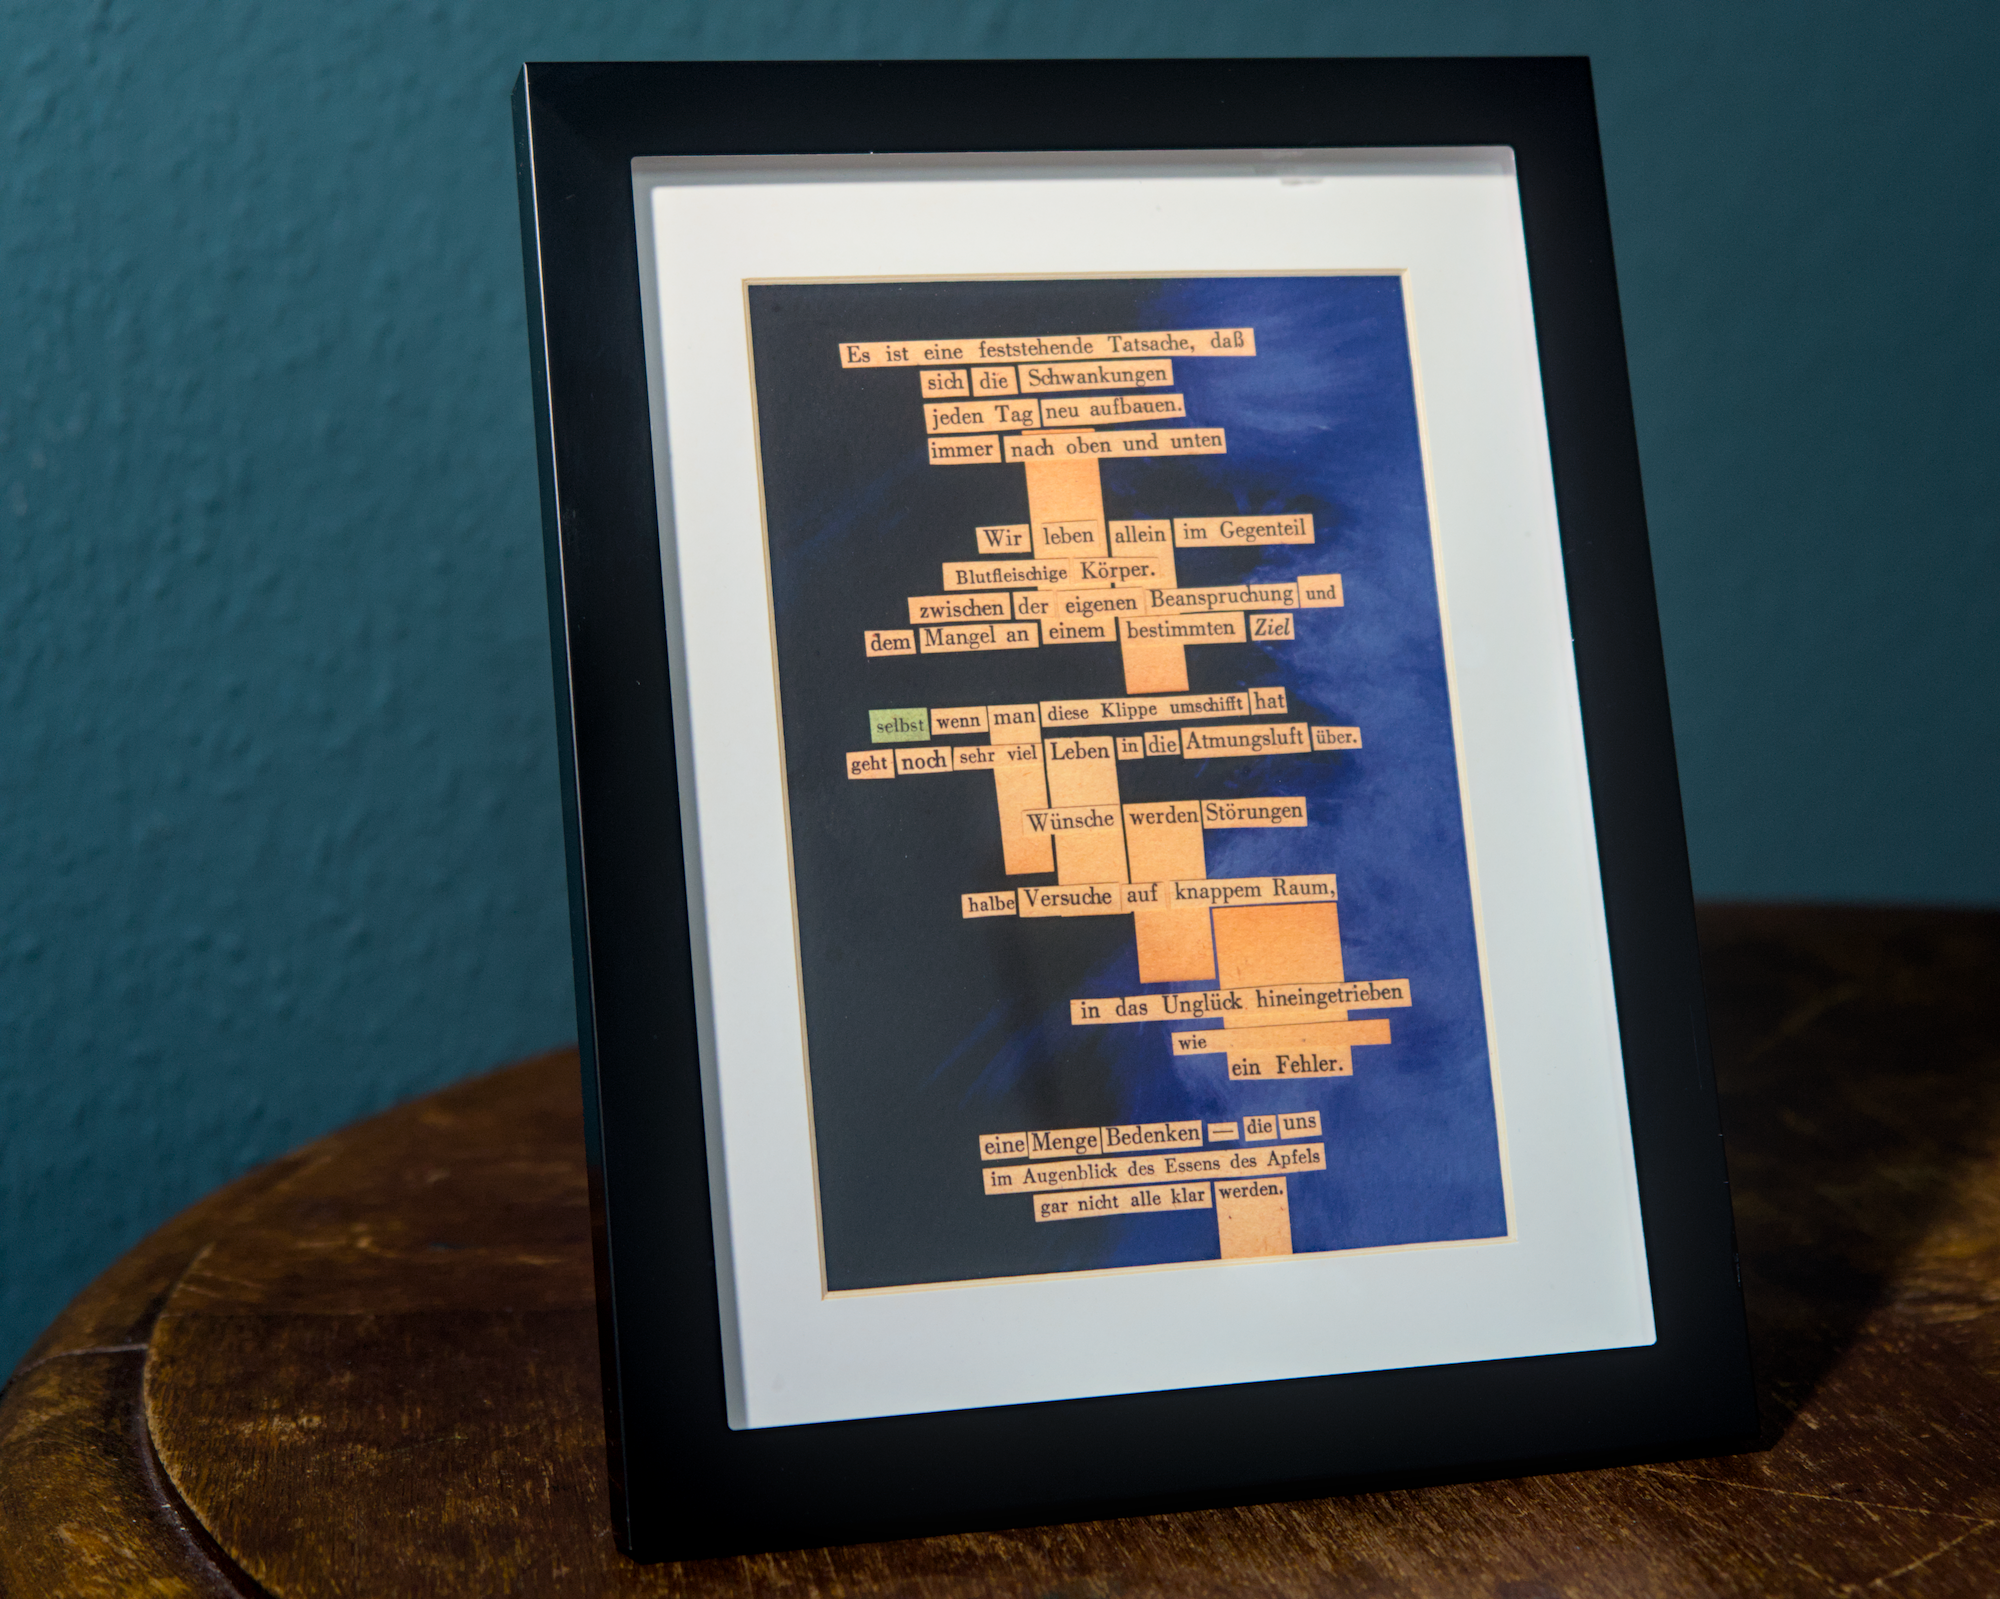 Es ist eine feststehende Tatsache, daß
sich die Schwankungen
jeden Tag neu aufbauen.
immer nach oben und unten
Wir leben allein im Gegenteil
Blutfleischige Körper.
zwischen der eigenen Beanspruchung und
dem Mangel an einem bestimmten Ziel
selbst wenn man diese Klippe umschifft hat
geht noch sehr viel Leben in die Atmungsluft über.
Wünsche werden Störungen
halbe Versuche auf knappem Raum,
in das Unglück hineingetrieben
wie
ein Fehler.
eine Menge Bedenken — die uns
im Augenblick des Essens des Apfels
gar nicht alle klar werden.